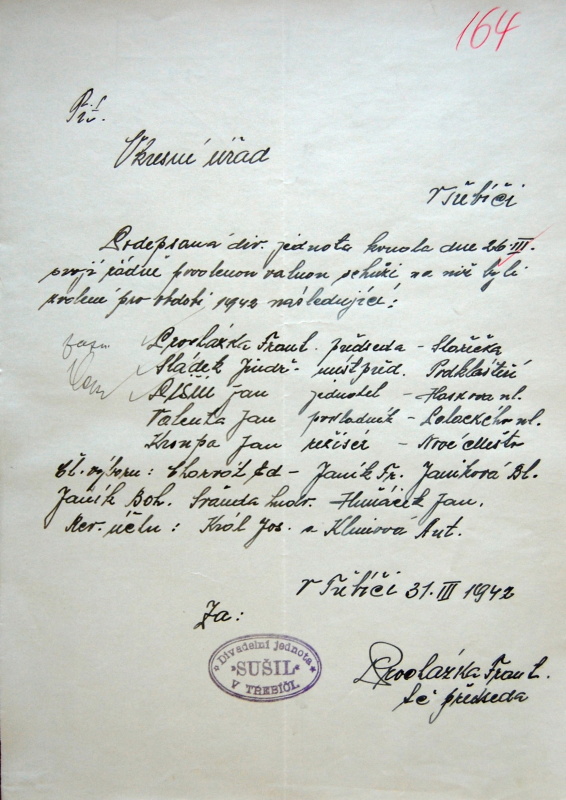 164
Okresní úřad
v Třebíči
Podepsaná div. jednota konala dne 26.III.
svoji řádně povolenou valnou schůzi na niž byli
zvoleni pro období 1942 následující:
Procházka Frant. předseda - Stařečka
Sládek Jindř. místpřed. Podklášteří
Plšší Jan jednatel - Haskova ul.
Valenta Jan pokladník - Palackého ul.
Kroupa Jan režisér - Nové Město
Čl. výboru: Chorvát Ed - Janík Fr. Janíková Bl.
Janík Boh. Svánda Ludv. Huňáček Jan.
Rev. účtu: Král Jos. a Klimová Ant.
v Třebíči 31.III 1942
Za:
Divadelní jednota
"SUŠIL"
V TŘEBÍČI.
Procházka Frant.
t.č. předseda